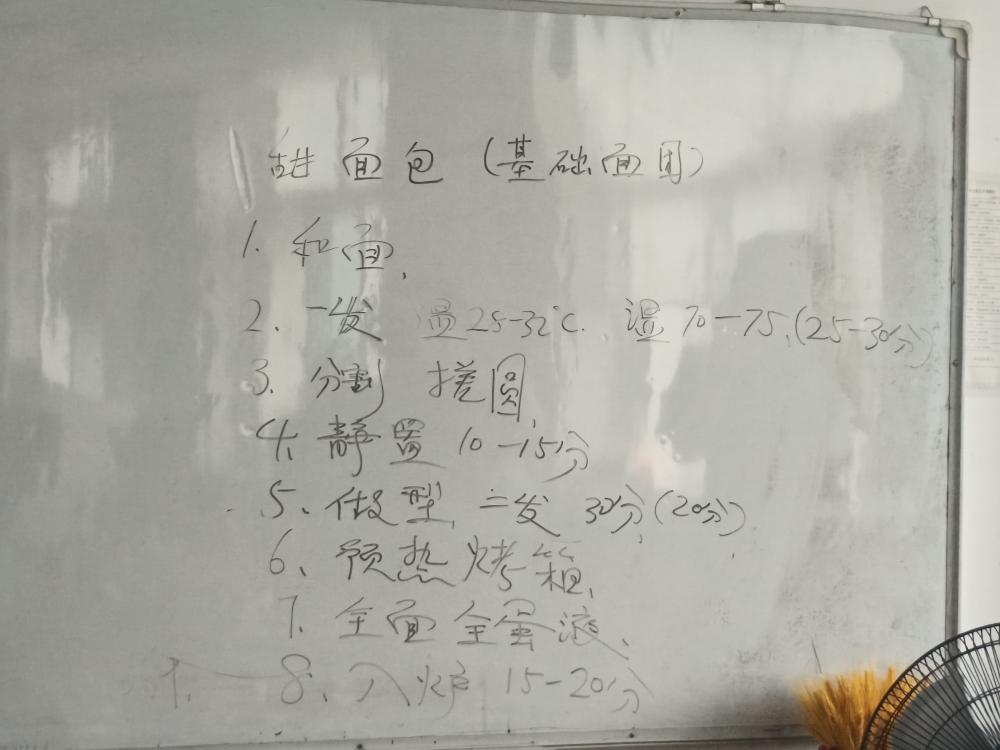 甜面包(基础面团)
1. 和面.
2. 一发 温28-32℃. 湿70-75.(25-30分)
3. 分割 搓圆.
4. 静置 10-15分
5、做型. 二发 30分(20分)
6、预热烤箱.
7. 全面全蛋液、
8、入炉 15-20分